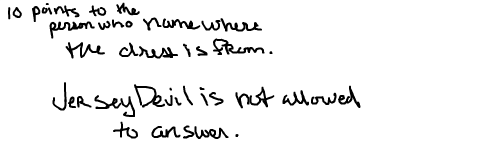 10 points to the
person who name where
the dress is from.
Jersey Devil is not allowed
to answer.